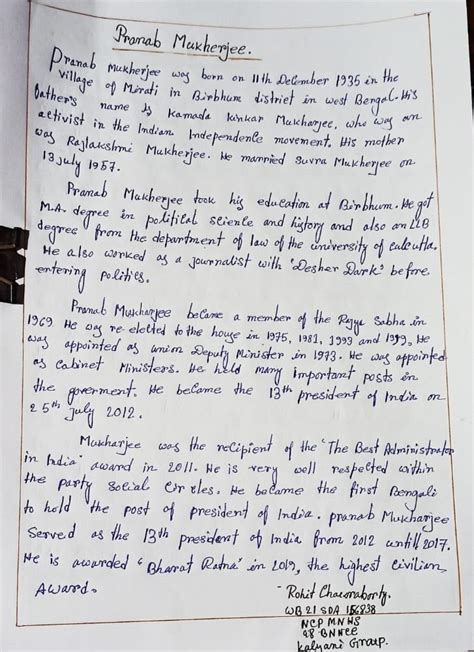 Pranab Mukherjee.
Pranab Mukherjee was born on 11th December 1935 in the
village of Mirati in Birbhum district in west Bengal. His
father's name is Kamada Kinkar Mukharjee, who was an
activist in the Indian Independence movement. His mother
was Rajlakshmi Mukherjee. He married Suvra Mukherjee on
13 July 1957.
Pranab Mukherjee took his education at Birbhum. He got
M.A. degree in political science and history and also an LLB
degree from the department of law of the university of calcutta.
He also worked as a journalist with "Desher Dark" before
entering politics.
Pranab Mukherjee became a member of the Rajya Sabha in
1969. He was re-elected to the house in 1975, 1981, 1993 and 1999. He
was appointed as union Deputy Minister in 1973. He was appointed
as Cabinet Ministers. He held many important posts in
the goverment. He became the 13th president of India on
25th July 2012.
Mukharjee was the recipient of the 'The Best Administrator
in India' award in 2011. He is very well respected within
the party social circles. He became the first Bengali
to hold the post of president of India. pranab Mukharjee
Served as the 13th president of India from 2012 untill 2017.
He is awarded 'Bharat Ratna' in 2019, the highest civilian
Award.
- Rohit Chacraborty.
WB 21 SDA
NCP MNHS
Kalyani Group.